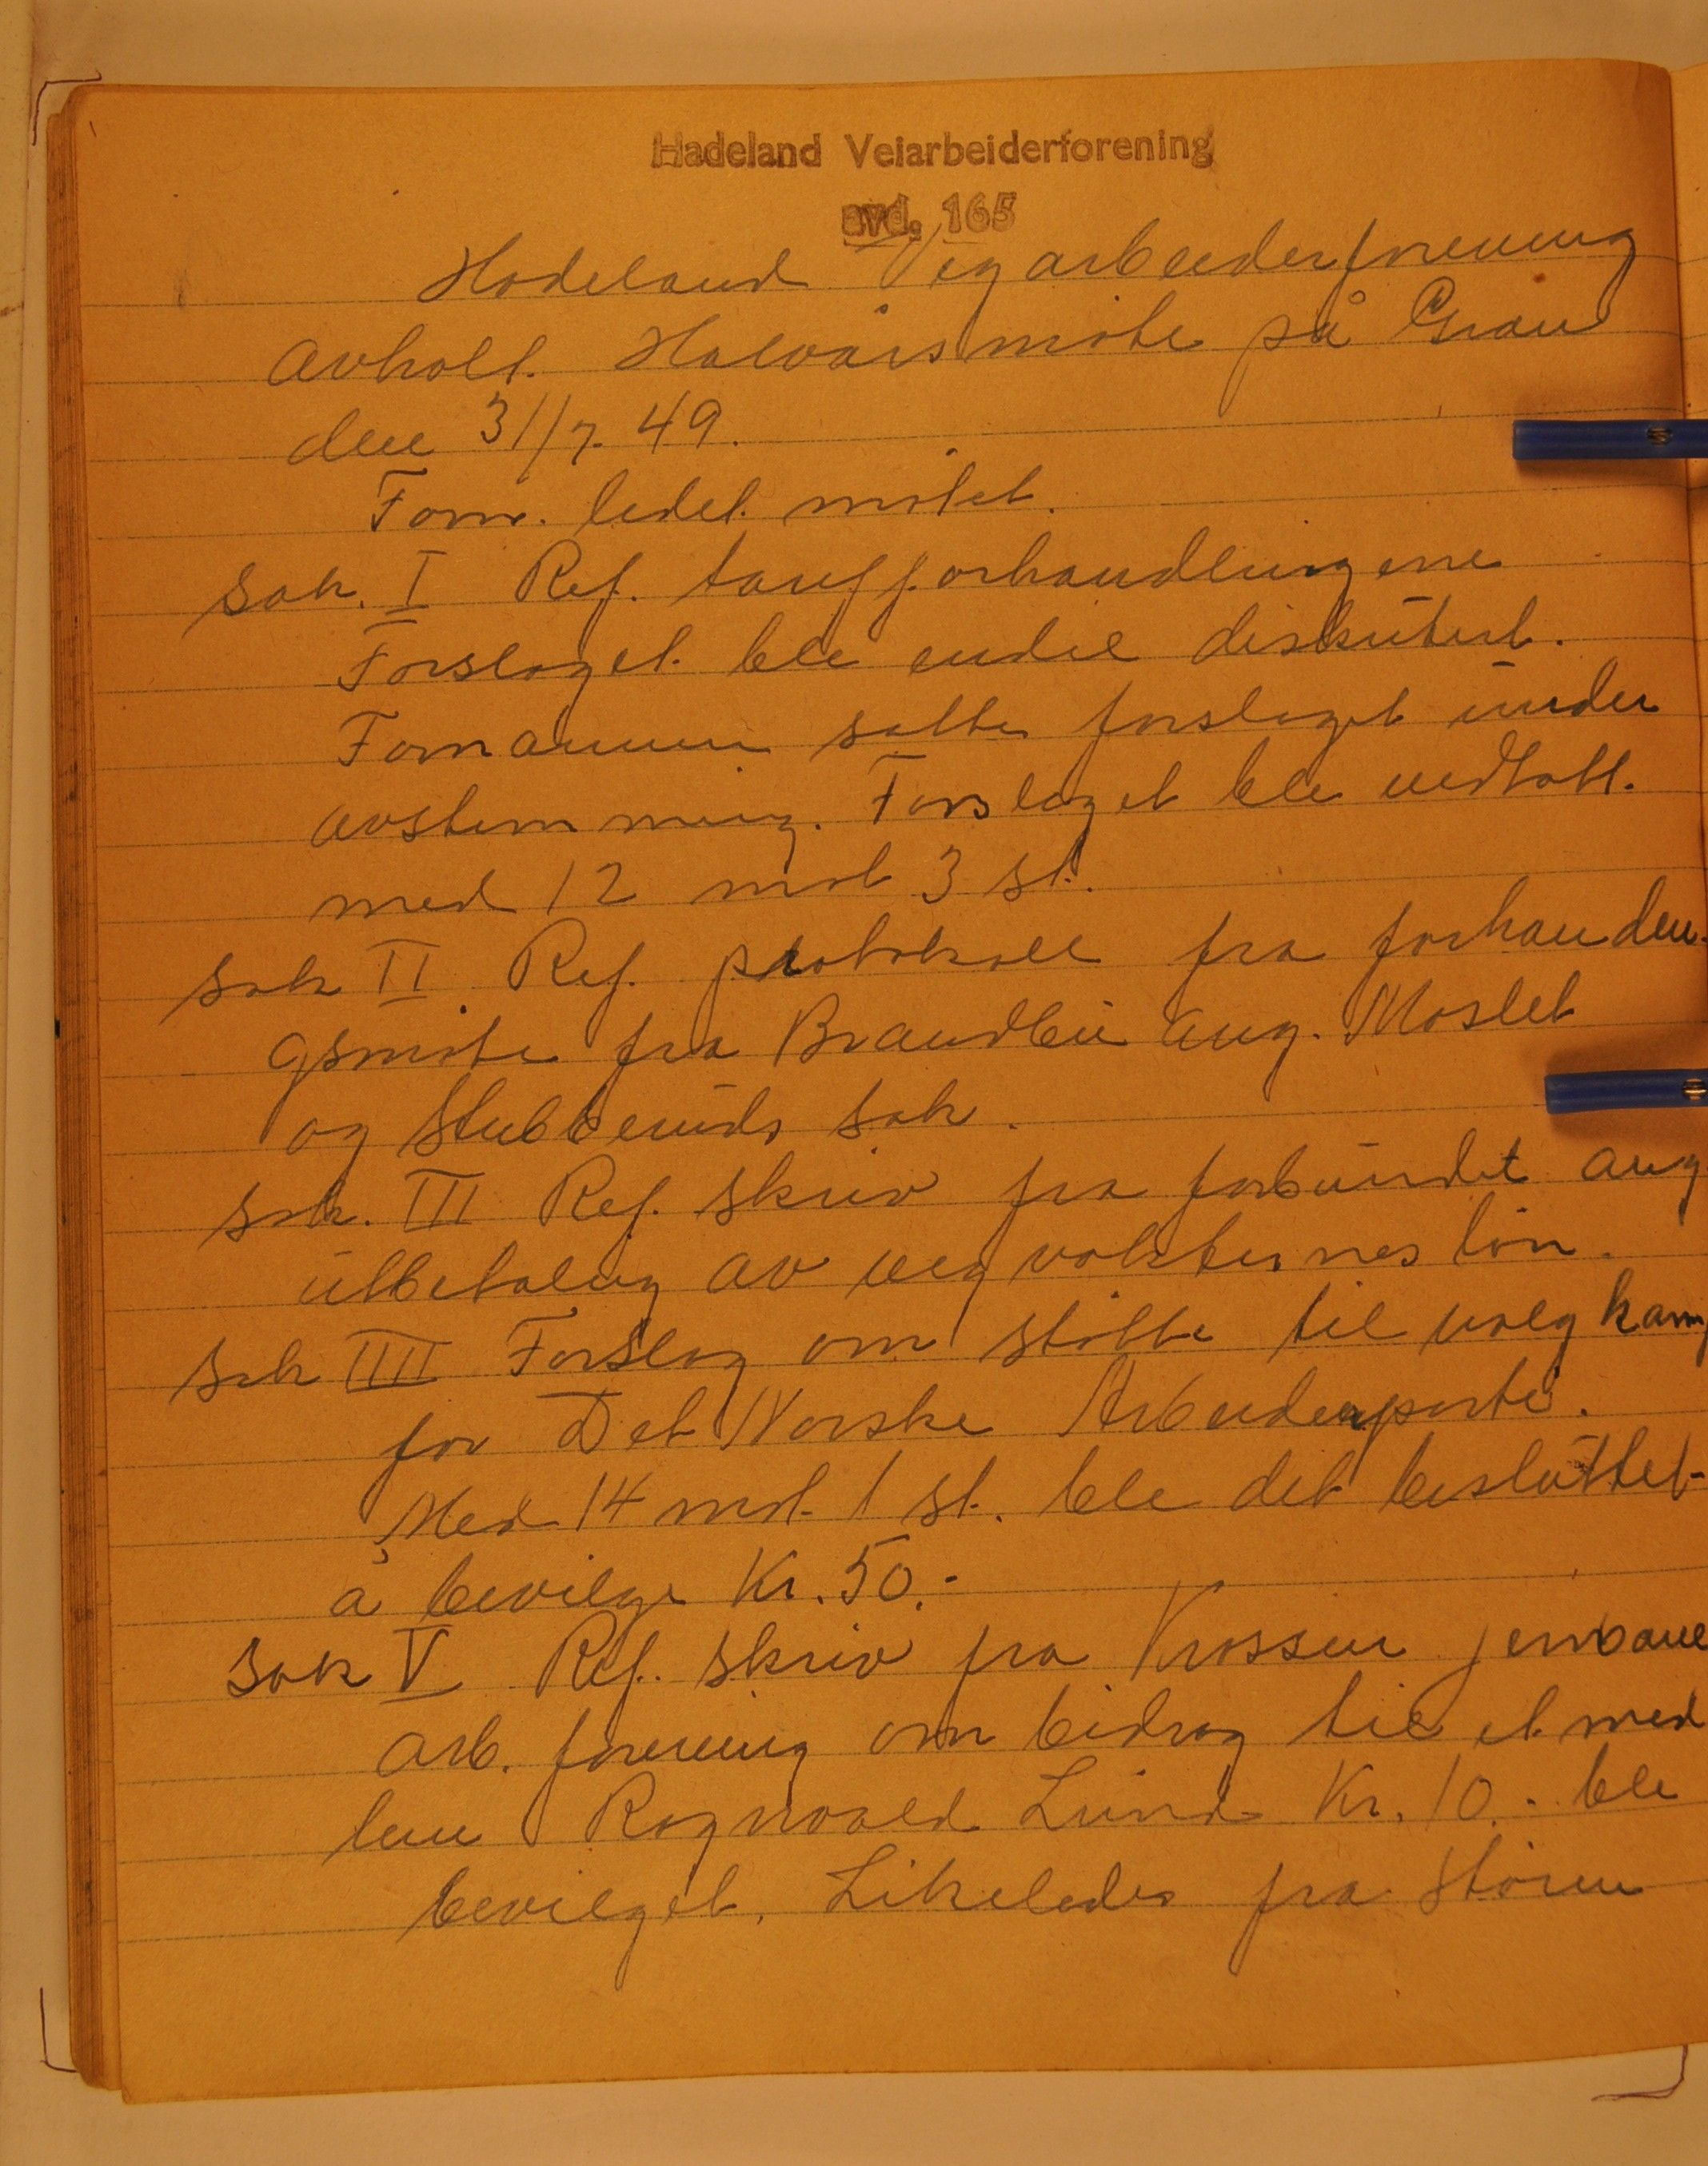 Hadeland Veiarbeiderforening
avd. 165
Hadeland Vegarbeiderforening
avholt. Halvårsmöte på Gran
den 31/7. 49.
Form. ledet mötet.
Sak. I Ref. tarifforhandlingene
Forslaget ble endel diskutert.
Formannen satte forslaget under
avstemming. Forslaget ble vedtatt.
med 12 mot 3 st.
Sak II Ref. protokoll fra forhanden-
gsmöte fra Brandbu ang. Moslet
og Stubberuds sak.
Sak. III Ref. skriv fra forbundet ang
utbetaling av vegvokternes lön.
Sak IIII Forslag om stötte til valgkamp
for Det Norske Arbeiderparti.
Med 14 mot 1 st. ble det besluttet
å bevilge Kr. 50.-
Sak V Ref. skriv fra Krossen jernbane
arb. forening om bidrag til et med
lem Ragnvald Lund Kr. 10.- ble
bevilget. Likeledes fra Stören